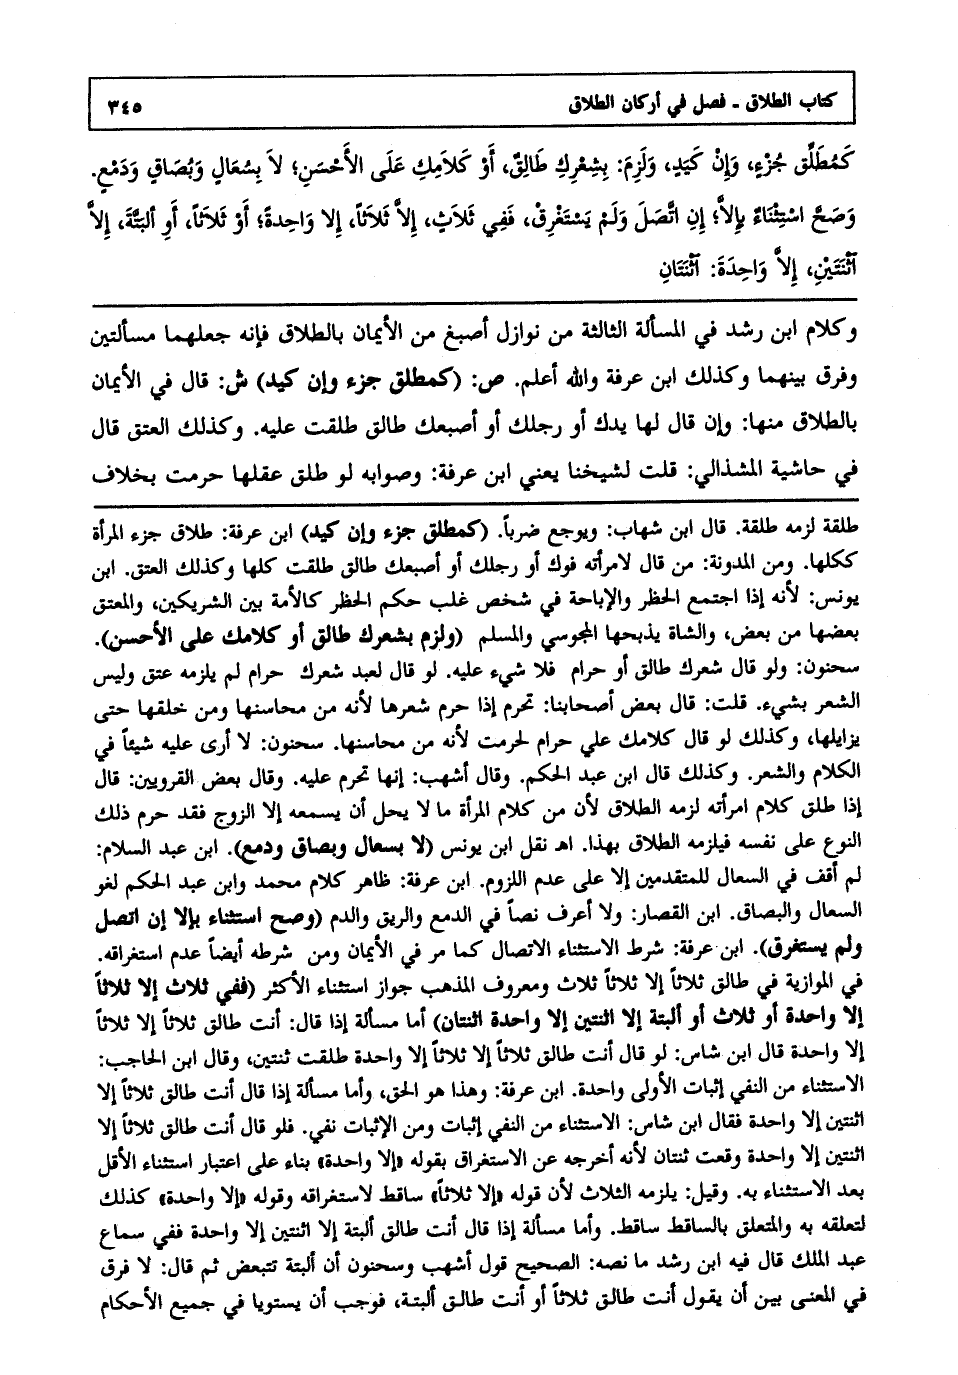 كتاب الطلاق ـ فصل في أركان الطلاق ٣٤٥
كَمُطَلِّقِ جُزْءٍ، وَإِنْ كَيَدٍ، وَلَزِمَ: بِشِعْرِكِ طَالِقٌ، أَوْ كَلاَمِكِ عَلَى الأَحْسَنِ؛ لاَ بِسُعَالٍ وَبُصَاقٍ وَدَمْعٍ.
وَصَحَّ اسْتِثْنَاءٌ بِإِلاَّ؛ إِنِ اتَّصَلَ وَلَمْ يَسْتَغْرِقْ، فَفِي ثَلاَثٍ، إِلاَّ ثَلاَثاً، إِلا وَاحِدةً؛ أَوْ ثَلاَثاً، أَوِ ألبَتَّةَ، إِلاَّ
آثْنَتَيْنِ، إِلاَّ وَاحِدَةً: آثْنَتَانِ
وكلام ابن رشد في المسألة الثالثة من نوازل أصبغ من الأيمان بالطلاق فإنه جعلهما مسألتين
وفرق بينهما وكذلك ابن عرفة والله أعلم. ص: (كمطلق جزء وإن كيد) ش: قال في الأيمان
بالطلاق منها: وإن قال لها يدك أو رجلك أو أصبعك طالق طلقت عليه. وكذلك العتق قال
في حاشية المشذالي: قلت لشيخنا يعني ابن عرفة: وصوابه لو طلق عقلها حرمت بخلاف
طلقة لزمه طلقة. قال ابن شهاب: ويوجع ضرباً. (كمطلق جزء وإن كيد) ابن عرفة: طلاق جزء المرأة
ككلها. ومن المدونة: من قال لامرأته فوك أو رجلك أو أصبعك طالق طلقت كلها وكذلك العتق. ابن
يونس: لأنه إذا اجتمع الحظر والإباحة في شخص غلب حكم الحظر كالأمة بين الشريكين، والمعتق
بعضها من بعض، والشاة يذبحها المجوسي والمسلم (ولزم بشعرك طالق أو كلامك على الأحسن).
سحنون: ولو قال شعرك طالق أو حرام فلا شيء عليه. لو قال لعبد شعرك حرام لم يلزمه عتق وليس
الشعر بشيء. قلت: قال بعض أصحابنا: تحرم إذا حرم شعرها لأنه من محاسنها ومن خلقها حتى
يزايلها، وكذلك لو قال كلامك علي حرام لحرمت لأنه من محاسنها. سحنون: لا أرى عليه شيئاً في
الكلام والشعر. وكذلك قال ابن عبد الحكم. وقال أشهب: إنها تحرم عليه. وقال بعض القرويين: قال
إذا طلق كلام امرأته لزمه الطلاق لأن من كلام المرأة ما لا يحل أن يسمعه إلا الزوج فقد حرم ذلك
النوع على نفسه فيلزمه الطلاق بهذا. اهـ نقل ابن يونس (لا بسعال وبصاق ودمع). ابن عبد السلام:
لم أقف في السعال للمتقدمين إلا على عدم اللزوم. ابن عرفة: ظاهر كلام محمد وابن عبد الحكم لغو
السعال والبصاق. ابن القصار: ولا أعرف نصاً في الدمع والريق والدم (وصح استثناء بإلا إن اتصل
ولم يستغرق). ابن عرفة: شرط الاستثناء الاتصال كما مر في الأيمان ومن شرطه أيضاً عدم استغراقه.
في الموازية في طالق ثلاثاً إلا ثلاثاً ثلاث ومعروف المذهب جواز استثناء الأكثر (ففي ثلاث إلا ثلاثاً
إلا واحدة أو ثلاث أو ألبتة إلا اثنتين إلا واحدة اثنتان) أما مسألة إذا قال: أنت طالق ثلاثاً إلا ثلاثاً
إلا واحدة قال ابن شاس: لو قال أنت طالق ثلاثاً إلا ثلاثاً إلا واحدة طلقت ثنتين، وقال ابن الحاجب:
الاستثناء من النفي إثبات الأولى واحدة. ابن عرفة: وهذا هو الحق، وأما مسألة إذا قال أنت طالق ثلاثاً إلا
اثنتين إلا واحدة فقال ابن شاس: الاستثناء من النفي إثبات ومن الإثبات نفي. فلو قال أنت طالق ثلاثاً إلا
اثنتين إلا واحدة وقعت ثنتان لأنه أخرجه عن الاستغراق بقوله «إلا واحدة» بناء على اعتبار استثناء الأقل
بعد الاستثناء به. وقيل: يلزمه الثلاث لأن قوله «إلا ثلاثاً» ساقط لاستغراقه وقوله «إلا واحدة» كذلك
لتعلقه به والمتعلق بالساقط ساقط. وأما مسألة إذا قال أنت طالق ألبتة إلا اثنتين إلا واحدة ففي سماع
عبد الملك قال فيه ابن رشد ما نصه: الصحيح قول أشهب وسحنون أن ألبتة تتبعض ثم قال: لا فرق
في المعنى بين أن يقول أنت طالق ثلاثاً أو أنت طالق ألبتة، فوجب أن يستويا في جميع الأحكام